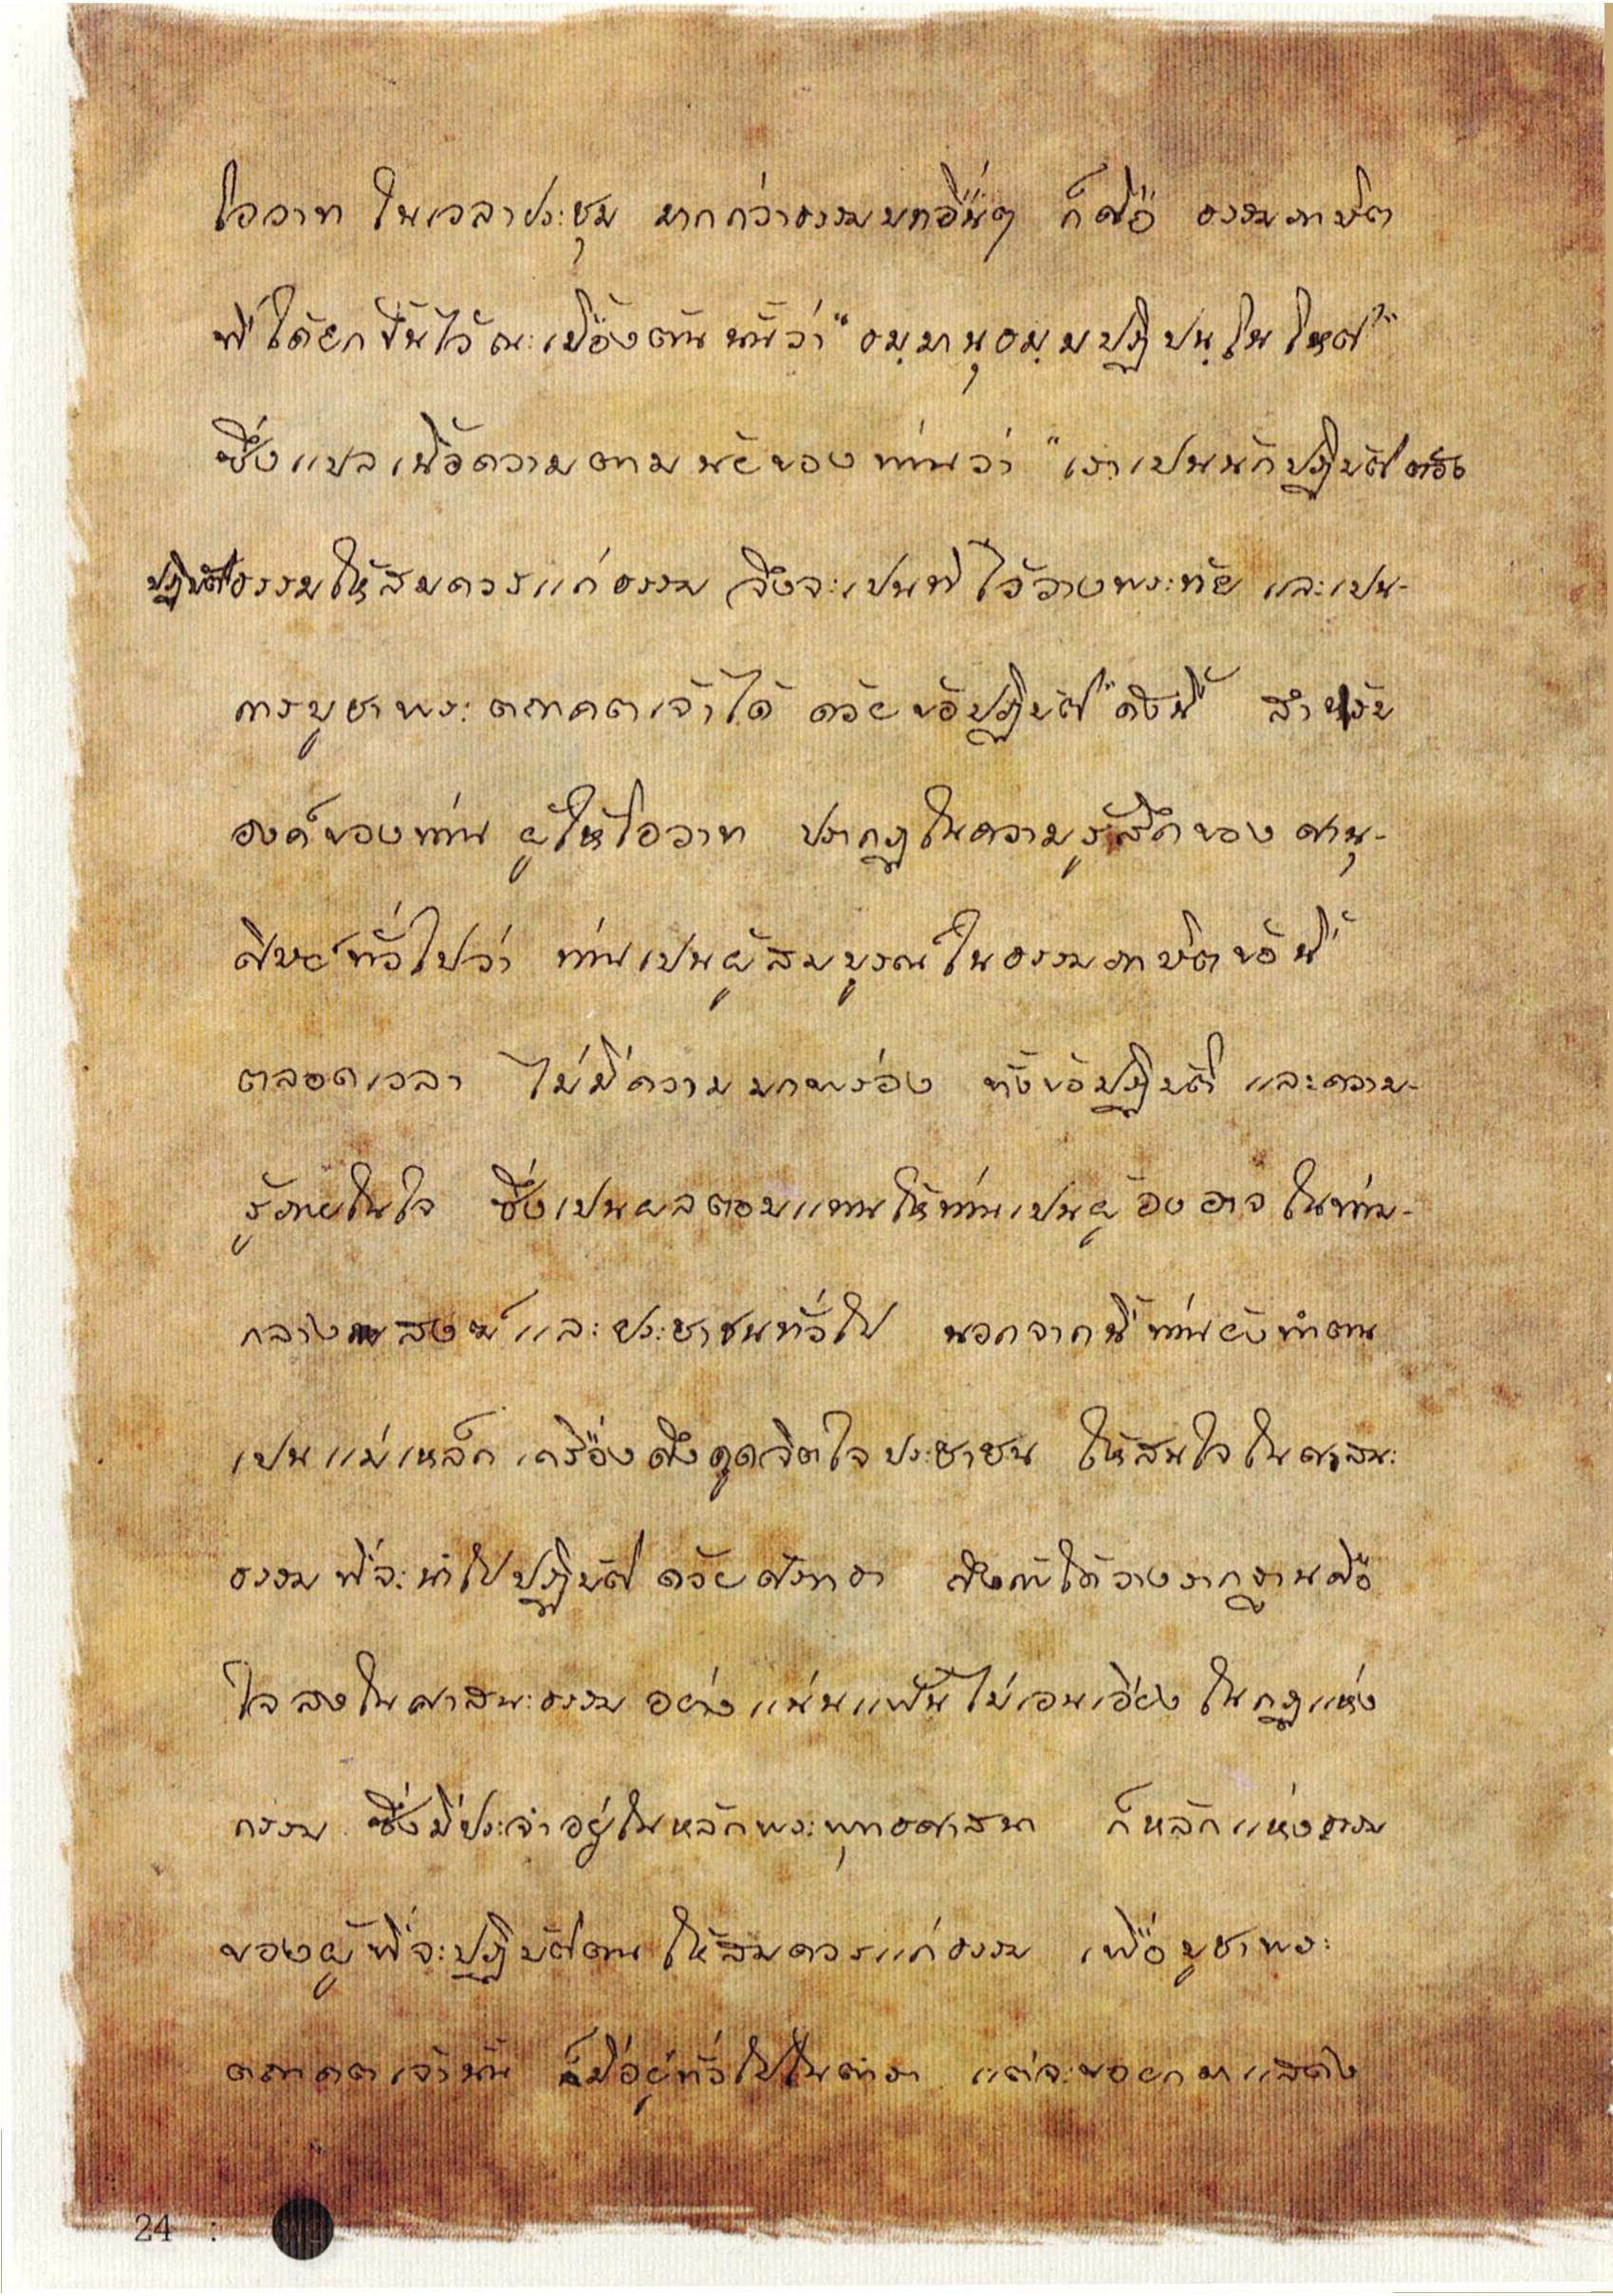 โอวาท ในเวลาประชุม มากกว่าธรรมบทอื่นๆ ก็คือ ธรรมภาษิต
ที่ได้ยกขึ้นไว้ ณ เบื้องต้นนั้นว่า “ธมฺมานุธมฺมปฏิปนฺโน โหติ”
ซึ่งแปลเนื้อความตามนัยของท่านว่า “เราเปนนักปฏิบัติต้อง
ปฏิบัติธรรมให้สมควรแก่ธรรม จึงจะเปนที่ไว้วางพระทัย และเปน-
การบูชาพระตถาคตเจ้าได้ ด้วยข้อปฏิบัติ” ดังนี้ สำหรับ
องค์ของท่าน ผู้ให้โอวาท ปรากฏในความรู้สึกของ สานุ-
ศิษย์ทั่วไปว่า ท่านเปนผู้สมบูรณ์ในธรรมภาษิตข้อนี้
ตลอดเวลา ไม่มีความบกพร่อง ทั้งข้อปฏิบัติ และความ-
รู้ภายในใจ ซึ่งเปนผลตอบแทนให้ท่านเปนผู้องอาจ ในท่าม-
กลางสงฆ์และประชาชนทั่วไป นอกจากนี้ท่านยังทำตน
เปนแม่เหล็ก เครื่องดึงดูดจิตใจประชาชน ให้สนใจในศาสนะ
ธรรม ที่จะนำไปปฏิบัติ ด้วยศรัทธา ซึ่งได้วางรากฐานคือ
ใจ ลงในศาสนะธรรม อย่างแน่นแฟ้นไม่เอนเอียง ในกฎแห่ง
กรรม ซึ่งมีประจำอยู่ในหลักพระพุทธศาสนา ก็หลักแห่งธรรม
ของผู้ที่จะปฏิบัติตน ให้สมควรแก่ธรรม เพื่อบูชาพระ
ตถาคตเจ้านั้น ก็มีอยู่ทั่วไปในตำรา แต่จะขอยกมาแสดง
24 :